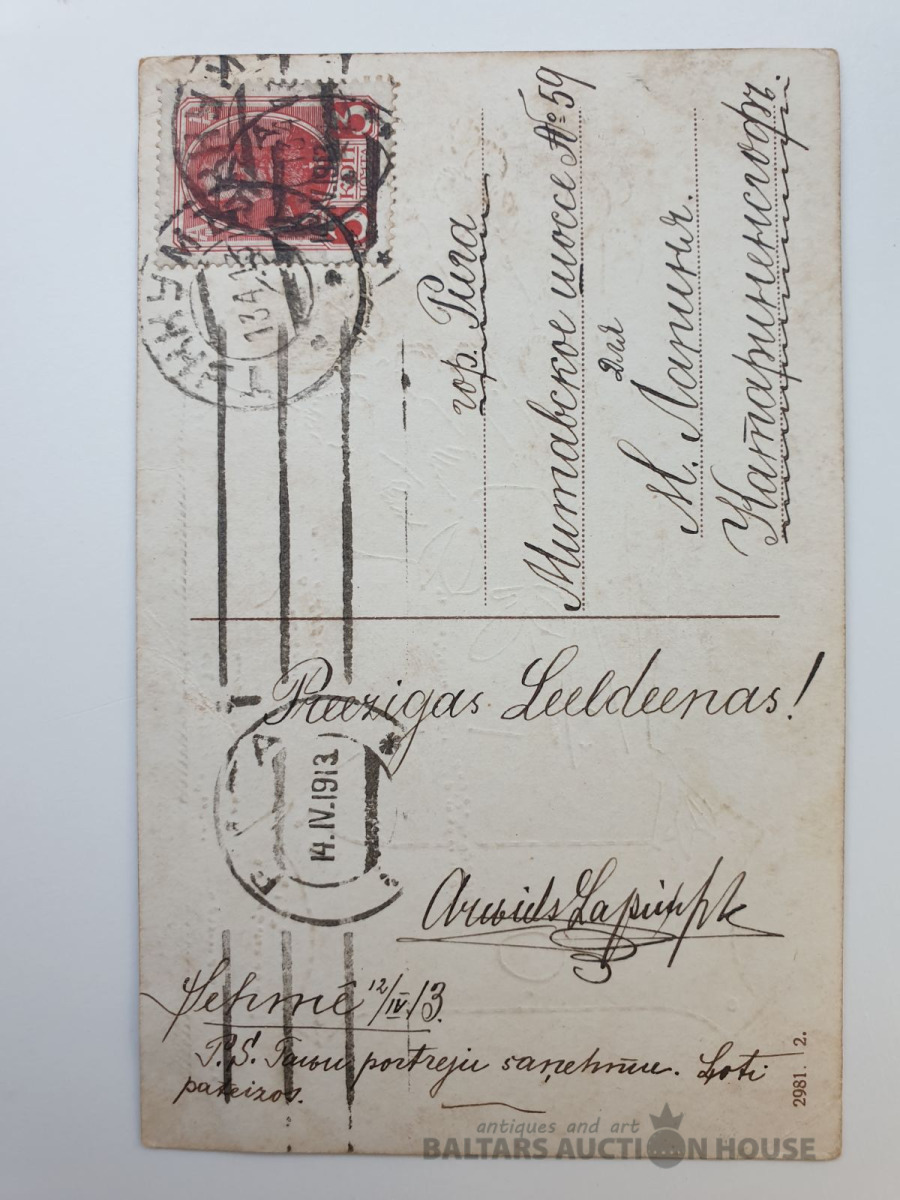 3 КОП 3
13.4.13
гор. Рига
Митавское шоссе № 59
для
М. Лапиня.
Катариненгофъ.
Preezigas Leeldeenas!
14.IV.1913
Arwids Lapiņsch
Sehmē 12/IV.13.
P.S. Tawu portreju saņehmu. Ļoti
pateizos.
2981. 2.
antiques and art
BALTARS AUCTION HOUSE